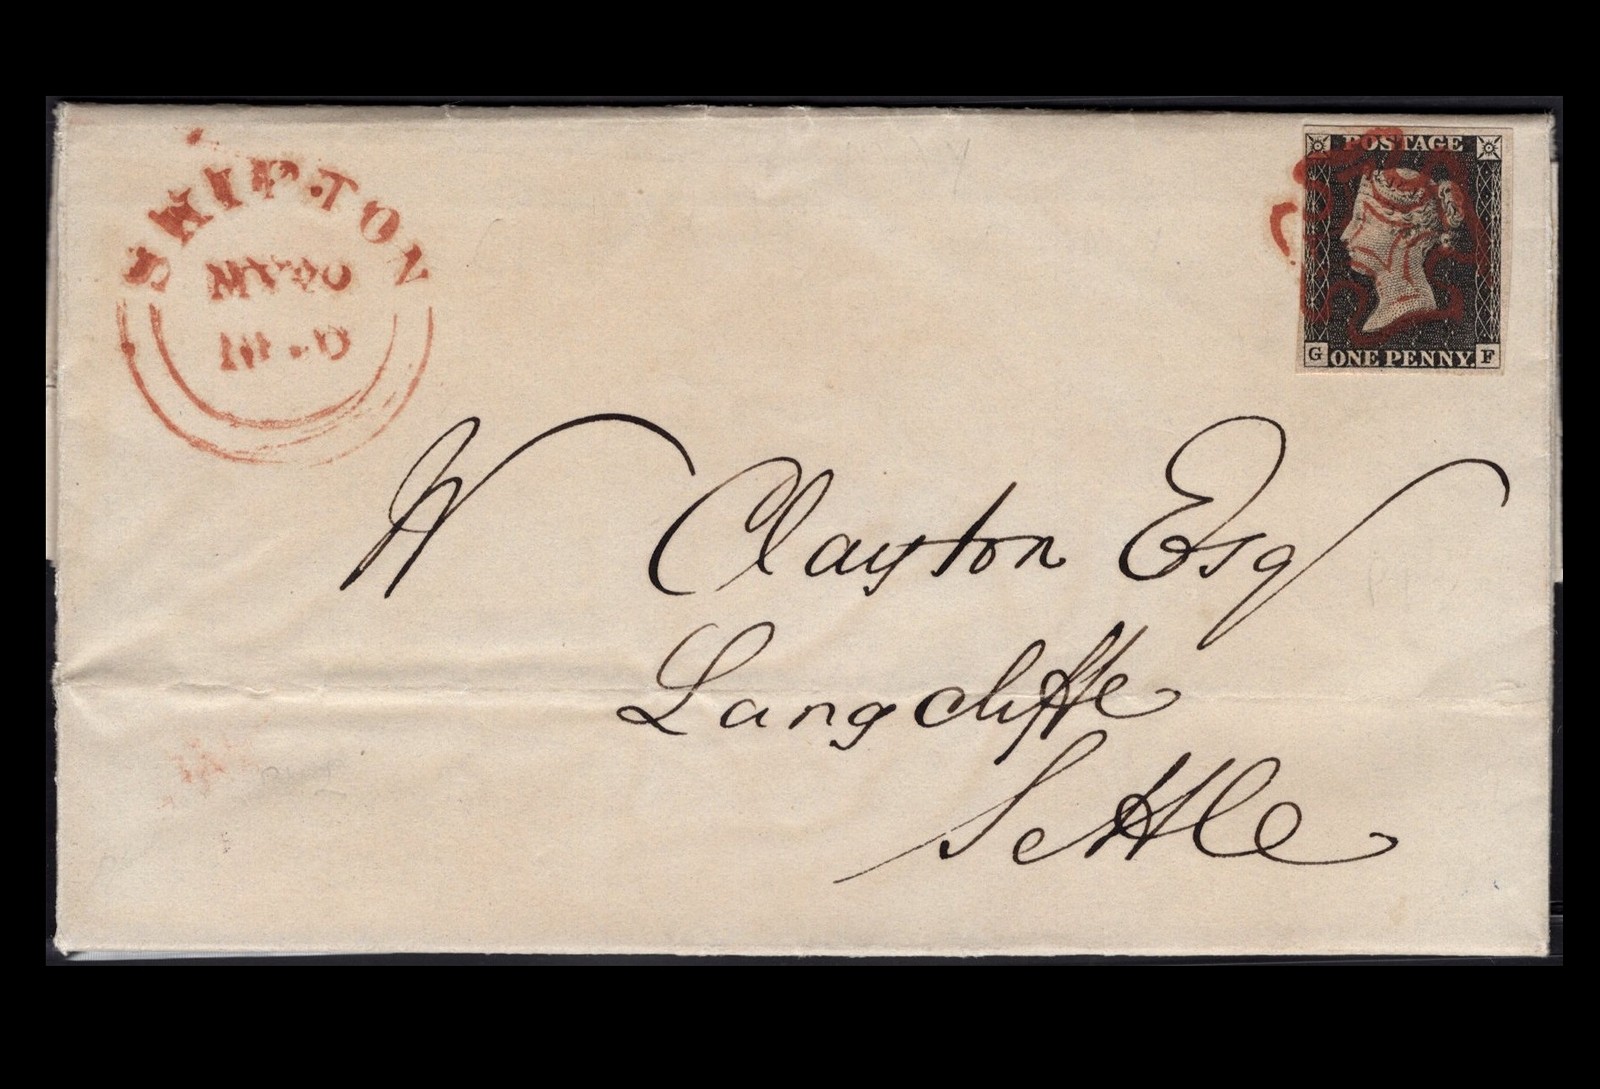 SKIPTON
MY 20
18 0
POSTAGE
G ONE PENNY. F
W Clayton Esq
Langcliffe
Settle